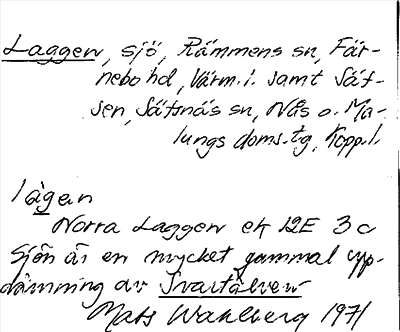 Laggen, sjö, Rämmens sn, Fär-
nebo hd, Värml. samt Sät-
sen, Säfsnäs sn, Nås o. Ma-
lungs doms.tg, Kopp.l.
lågen
Norra Laggen ek 12E 3c
Sjön är en mycket gammal upp-
dämning av Svartälven
Mats Wahlberg 1971